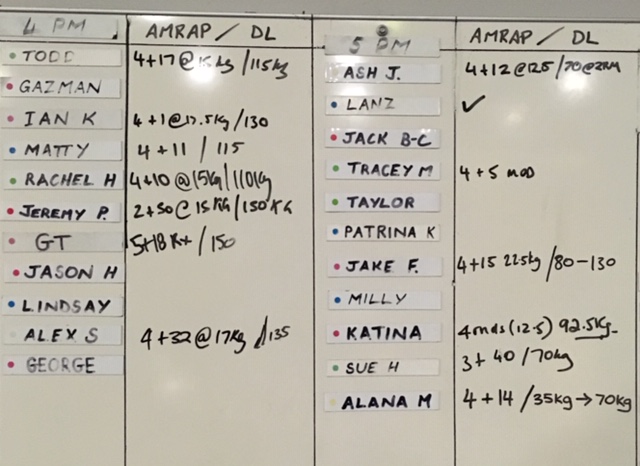 4 PM AMRAP / DL
TODD 4+17@15kg /115kg
GAZMAN
IAN K 4+1@17.5kg/130
MATTY 4+11 / 115
RACHEL H 4+10 @15kg/110kg
JEREMY P. 2+50@15kg/150KG
GT 5+18 RX / 150
JASON H
LINDSAY
ALEX S 4+32@17kg /135
GEORGE
5 PM AMRAP / DL
ASH J. 4+12@12.5/70@2RM
LANZ ✓
JACK B-C
TRACEY M 4+5 MOD
TAYLOR
PATRINA K
JAKE F. 4+15 22.5kg /80-130
MILLY
KATINA 4rnds (12.5) 92.5kg
SUE H 3+40/70kg
ALANA M 4+14 /35kg→70kg